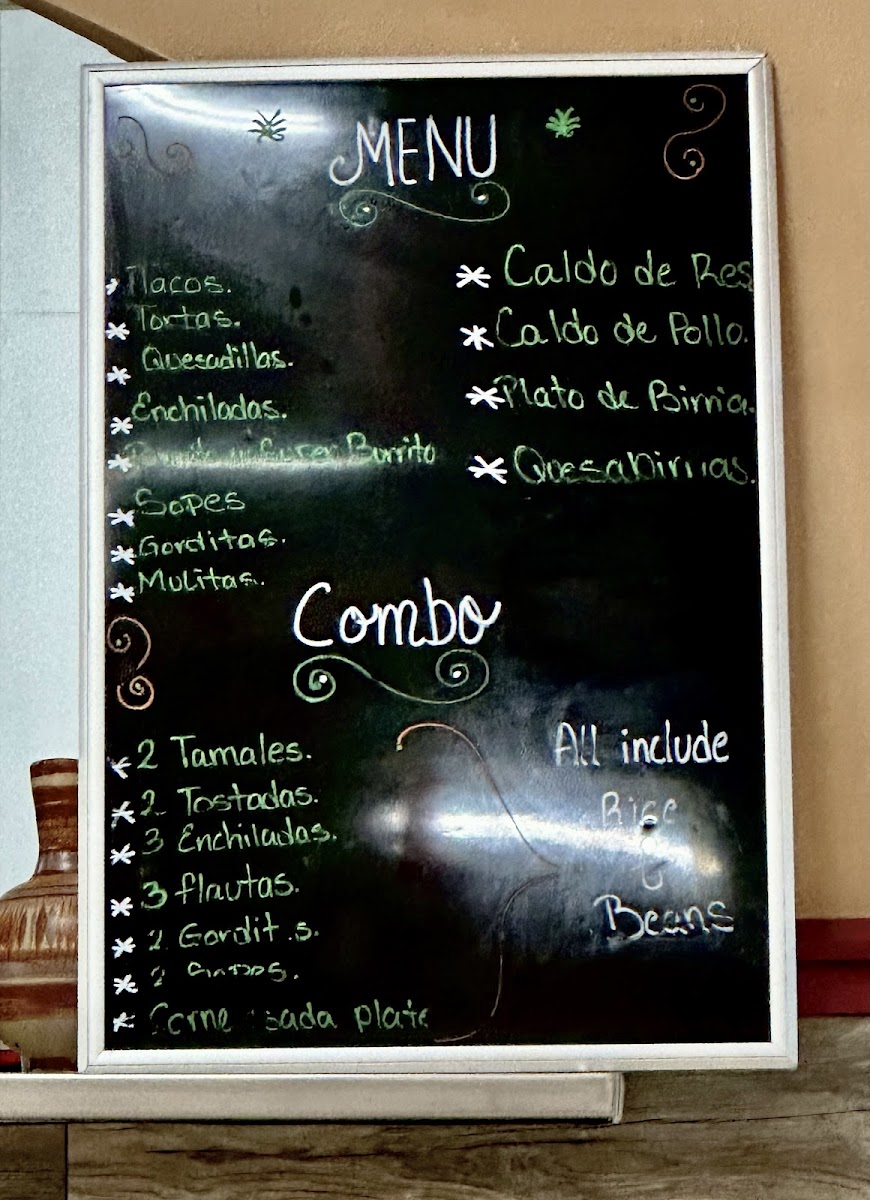 MENU
* Tacos.
* Tortas.
* Quesadillas.
* Enchiladas.
* Burrito
* Sopes
* Gorditas.
* Mulitas.
* Caldo de Res
* Caldo de Pollo.
* Plato de Birria.
* Quesabirrias.
Combo
* 2 Tamales.
* 2 Tostadas.
* 3 Enchiladas.
* 3 flautas.
* 2 Gordit s.
* 2
* Carne sada plate
All include
Rice
&
Beans